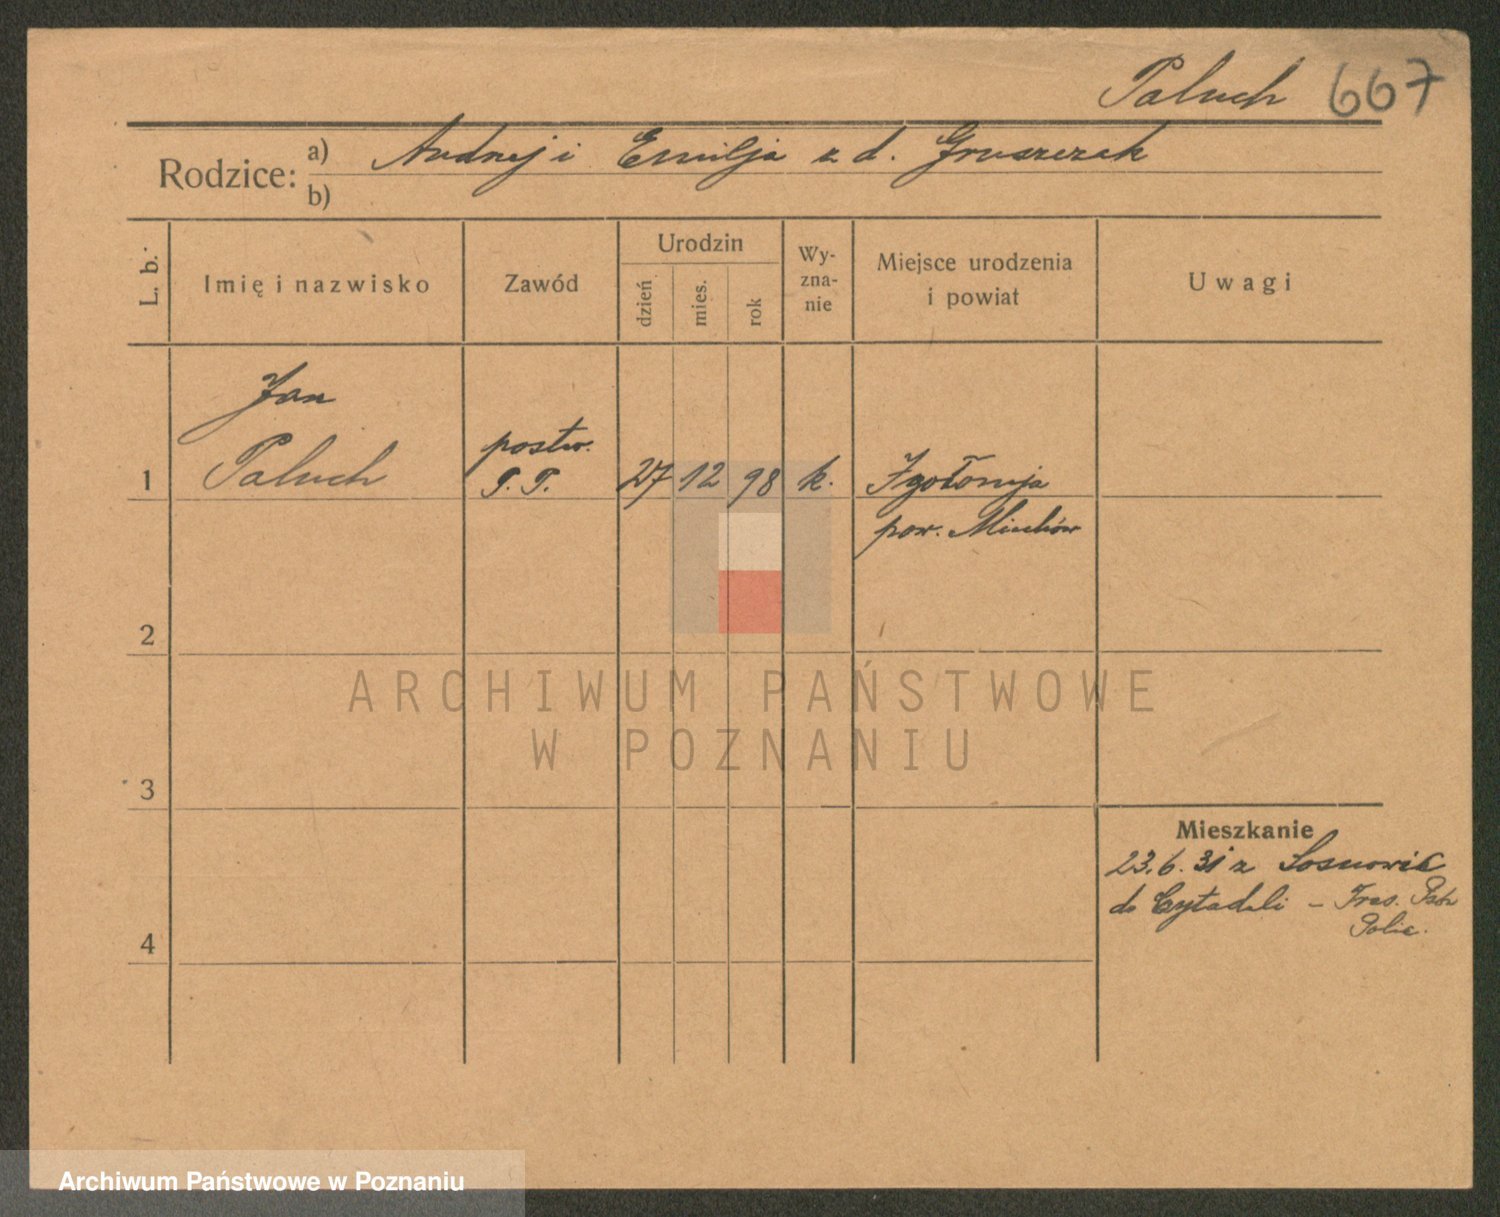 Paluch 667
Rodzice: a) Andrzej i Emilja z d. Gruszczak
b)
L. b. Imię i nazwisko Zawód Urodzin dzień mies. rok Wy-zna-nie Miejsce urodzenia i powiat Uwagi
Jan
1 Paluch postw. P. P. 27 12 98 k. Igołomja
pow. Miechów
2
3
4
ARCHIWUM PAŃSTWOWE
W POZNANIU
Mieszkanie
23.6.31 z Sosnowic
do Cytadeli –
Polic.
Archiwum Państwowe w Poznaniu